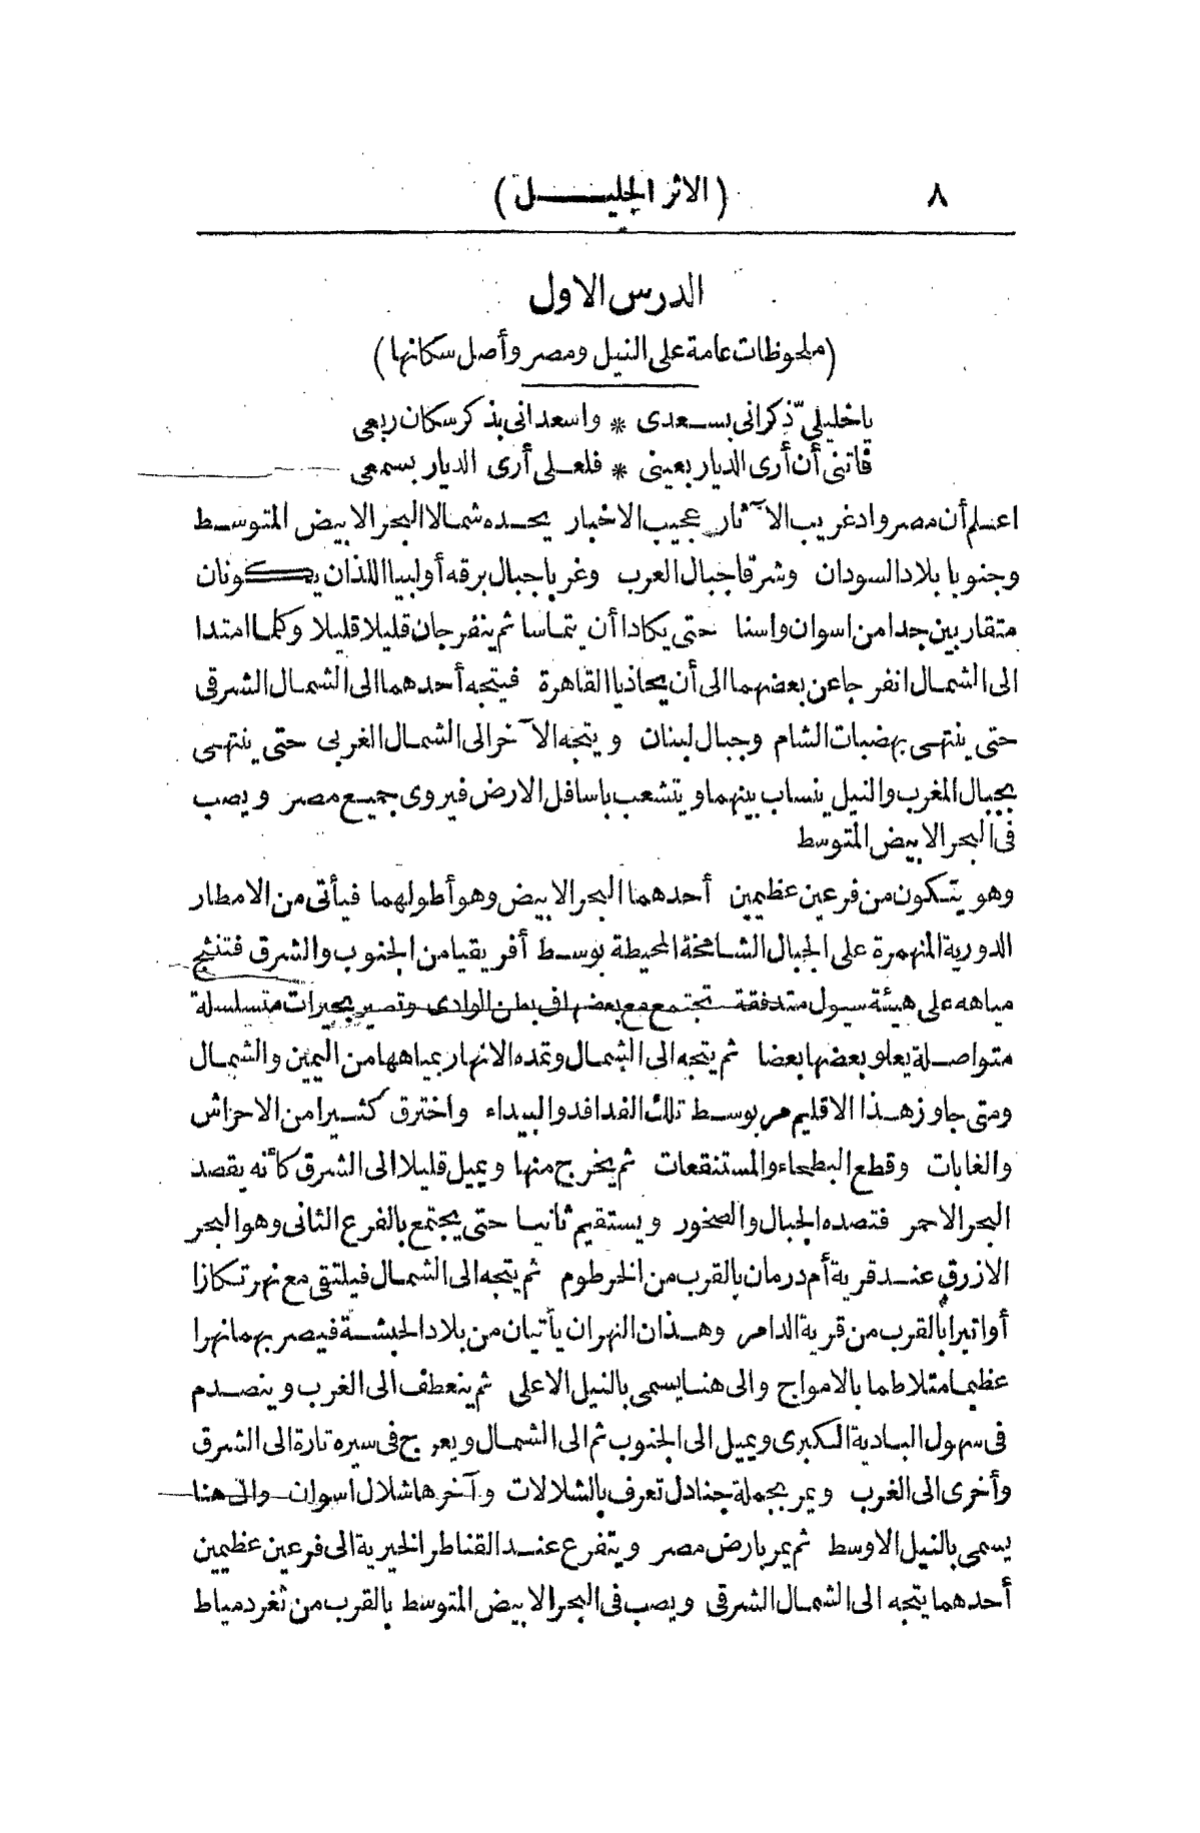 ٨
(الاثر الجليـــــل)
الدرس الاول
(ملحوظات عامة على النيل ومصر وأصل سكانها)
ياخليلىّ ذكرانى بسـعدى * واسعدانى بذكر سكان ربعى
فاتنى أن أرى الديار بعينى * فلعلى أرى الديار بسمعى
اعلم أن مصر واد غريب الآثار عجيب الاخبار يحده شمالا البحر الابيض المتوسط
وجنوبا بلاد السودان وشرقا جبال العرب وغربا جبال برقه أوليبيا اللذان يكونان
متقاربين جدا من اسوان واسنا حتى يكادا أن يتماسا ثم ينفرجان قليلا قليلا وكلما امتدا
الى الشمال انفرجا عن بعضهما الى أن يحاذيا القاهرة فيتجه أحدهما الى الشمال الشرقى
حتى ينتهى بهضبات الشام وجبال لبنان ويتجه الآخر الى الشمال الغربى حتى ينتهى
بجبال المغرب والنيل ينساب بينهما ويتشعب باسافل الارض فيروى جميع مصر ويصب
فى البحر الابيض المتوسط
وهو يتكون من فرعين عظيمين أحدهما البحر الابيض وهو أطولهما فيأتى من الامطار
الدورية المنهمرة على الجبال الشامخة المحيطة بوسط أفريقيا من الجنوب والشرق فتنثج
مياهه على هيئة سيول متدفقة تجتمع مع بعضها فى بطن الوادى وتصير بحيرات متسلسلة
متواصلة يعلو بعضها بعضا ثم يتجه الى الشمال وتمده الانهار بمياهها من اليمين والشمال
ومتى جاوز هذا الاقليم مر بوسط تلك الفدافد والبيداء واخترق كثيرا من الاحراش
والغابات وقطع البطحاء والمستنقعات ثم يخرج منها ويميل قليلا الى الشرق كأنه يقصد
البحر الاحمر فتصده الجبال والصخور ويستقيم ثانيا حتى يجتمع بالفرع الثانى وهو البحر
الازرق عند قرية أم درمان بالقرب من الخرطوم ثم يتجه الى الشمال فيلتقى مع نهر تكازا
أو اتبرا بالقرب من قرية الدامر وهذان النهران يأتيان من بلاد الحبشة فيصر بهما نهرا
عظيما متلاطما بالامواج والى هنا يسمى بالنيل الاعلى ثم ينعطف الى الغرب وينصدم
فى سهول البادية الكبرى ويميل الى الجنوب ثم الى الشمال ويعرج فى سيره تارة الى الشرق
وأخرى الى الغرب ويمر بجملة جنادل تعرف بالشلالات وآخرها شلال اسوان والى هنا
يسمى بالنيل الاوسط ثم يمر بارض مصر ويتفرع عند القناطر الخيرية الى فرعين عظيمين
أحدهما يتجه الى الشمال الشرقى ويصب فى البحر الابيض المتوسط بالقرب من ثغر دمياط